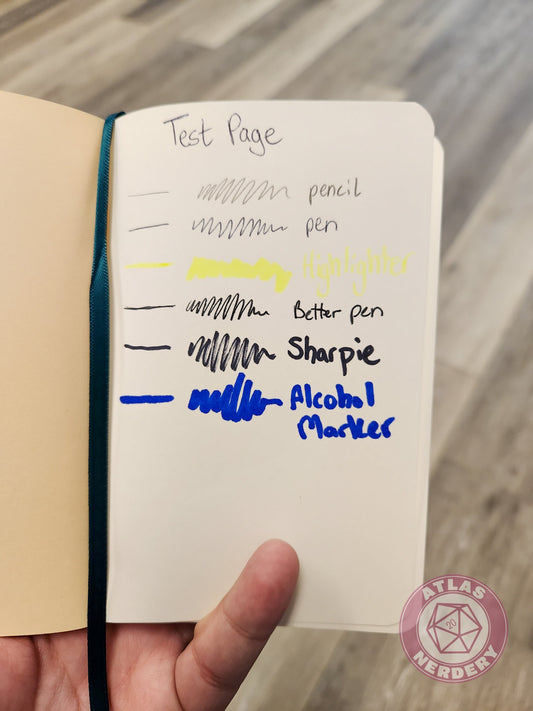 Test Page
pencil
pen
Highlighter
Better pen
Sharpie
Alcohol
Marker
ATLAS
20
NERDERY